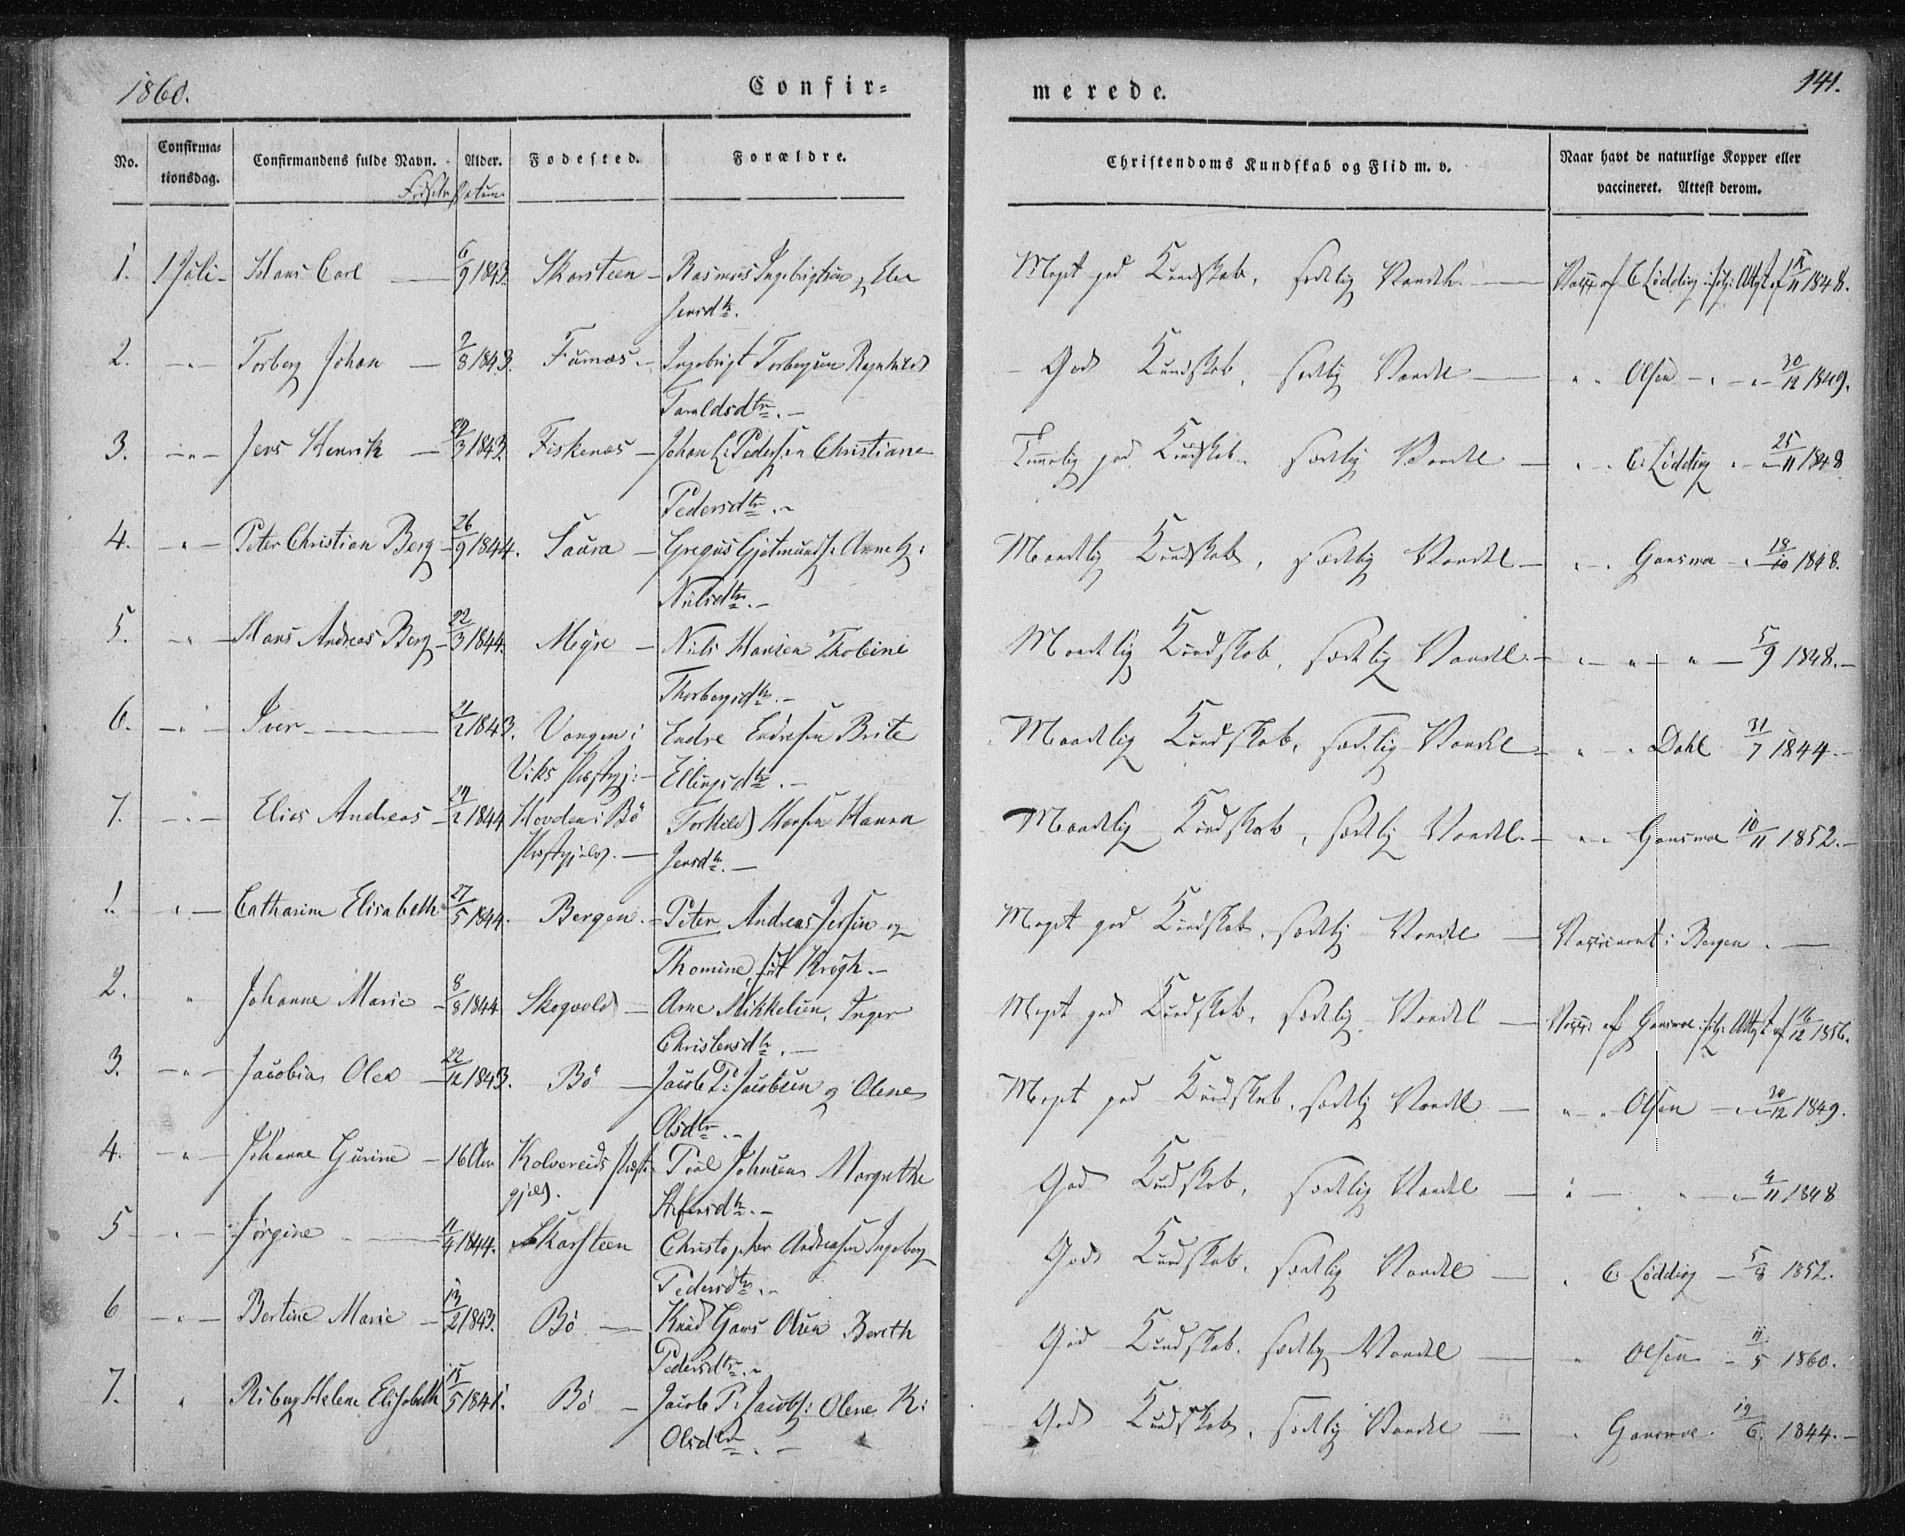 1860.
Confir=
merede.
141.
No.
Confirma-
tionsdag.
Confirmandens fulde Navn.
Alder.
Fødested.
Forældre.
Christendoms Kundskab og Flid m. v.
Naar havt de naturlige Kopper eller
vaccineret. Attest derom.
Fødsels datum
1. 1 Juli – Hans Carl — 6/9 1843. Skarsteen – Rasmus Ingebrigtsen og Elen
Jensdtr. Meget god Kundskab, sædelig Vandel. — Vacc. af C Lødding ifølge Attest af 11 1848.
2. –„– Torberg Johan — 8 1843. Fumæs – Ingebrigt Torbergsen Ragnhild
Taraldsdtr. – God Kundskab, sædelig Vandel — „ „ Olsen – „ – 30/12 1849.
3. –„– Jens Henrik — 3 1843. Fiskenæs – Johan C. Pedersen Christiane
Pedersdtr. – Temmelig god Kundskab, sædelig Vandel — „ „ C. Lødding „ – 25/11 1848
4. „ Peter Christian Berg – 26/9 1844. Saura – Gregus Gjetmunds: Anne
Nielsdtr. – Maadelig Kundskab, sædelig Vandel – „ „ Gaasmoe „ 18/10 1848.
5. „ Hans Andreas Berg – 22/3 1844. Meyre – Niels Hansen Thobine
Thorbergsdtr. – Maadelig Kundskab, sædelig Vandel. – „ „ „ – 5/9 1848. –
6. „ Iver — 21/2 1843. Vangen i
Viks Præstgj: – Endre Endresen Brite
Ellingsdtr. – Maadelig Kundskab, sædelig Vandel – „ „ Dahl 31/7 1844. –
7. „ Elias Andreas – 2 1844 Hovden i Bø
Præstgjeld. – Torkild Hansen Hanna
Jensdtr. – Maadelig Kundskab, sædelig Vandel. – „ „ Gaasmoe 10/11 1852. –
1. „ Catharine Elisabeth 27/5 1844. Bergen. – Peter Andreas Jessen og
Thomine født Krogh. – Meget god Kundskab, sædelig Vandel — Vaccineret i Bergen. —
2. „ Johanne Marie – 8/8 1844 Skogvold – Arne Mikkelsen, Inger
Christensdtr. – Meget god Kundskab, sædelig Vandel — Vacc: af Gaasmoe ifølge Attest af 16/12 1856.
3. –„– Jacobia Olea – 22/12 1843. Bø – Jacob P. Jacobsen og Olene
Olsdtr. – Meget god Kundskab, sædelig Vandel — „ „ Olsen – „ 30/12 1849.
4. –„– Johanne Gurine – 16 Aar Kolvereids Præst-
gjeld. Poul Johnsen Margrethe
Stefensdtr. – God Kundskab, sædelig Vandel — „ – „ – 11 1848
5 –„– Jørgine — 11/4 1844. Skarsteen Christopher Andreasen Ingeborg
Pedersdtr. – God Kundskab, sædelig Vandel — „ C Lødding – 5/8 1852.
6 –„– Bertine Marie – 13/2 1843. Bø — Knud Gaus Olsen Bereth
Pedersdtr. – God Kundskab, sædelig Vandel — „ Olsen – 11/5 1860.
7. „ Riberg Helene Elisabeth 18/5 1841. Bø – Jacob P. Jacobs: Olene K:
Olsdtr. – God Kundskab, sædelig Vandel — „ Gaasmoe. 19/6. 1844. –